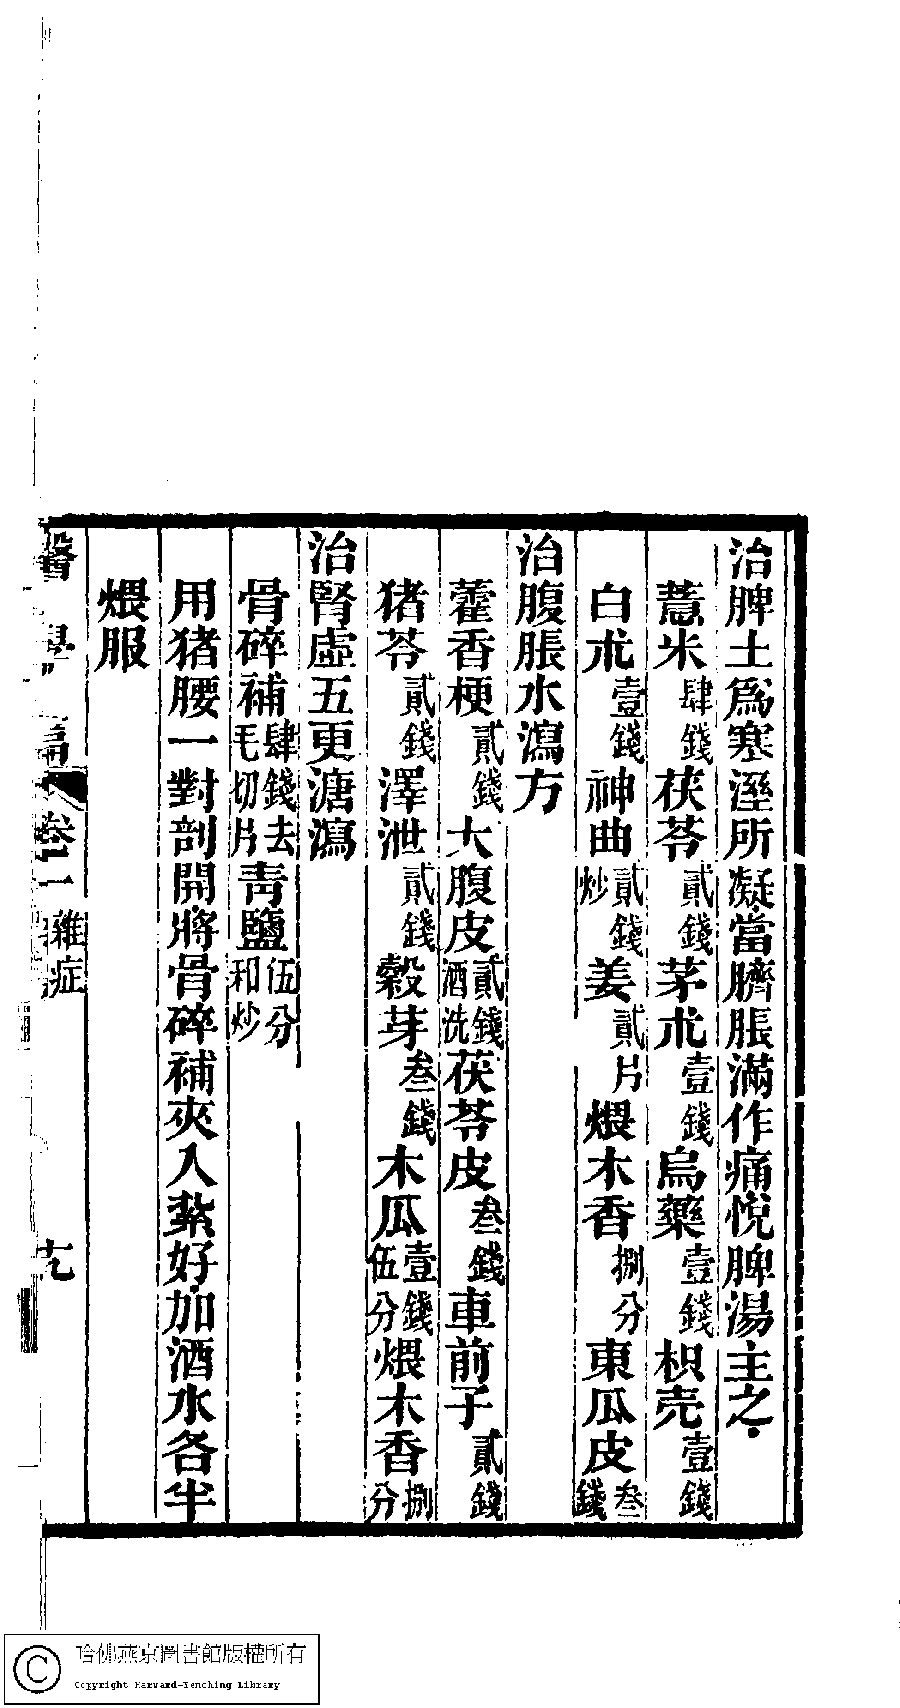 治脾土爲寒溼所凝當臍脹滿作痛悅脾湯主之
薏米肆錢茯苓貳錢茅朮壹錢烏藥壹錢枳壳壹錢
白朮壹錢神曲貳錢炒姜貳片煨木香捌分東瓜皮叁錢
治腹脹水瀉方
藿香梗貳錢大腹皮貳錢酒洗茯苓皮叁錢車前子貳錢
猪苓貳錢澤泄貳錢穀芽叁錢木瓜壹錢伍分煨木香捌分
治腎虛五更溏瀉
骨碎補肆錢去毛切片靑鹽伍分和炒
用猪腰一對剖開將骨碎補夾入紮好加酒水各半
煨服
醫學 卷一 雜症
哈佛燕京圖書館版權所有
Copyright Harvard-Yenching Library